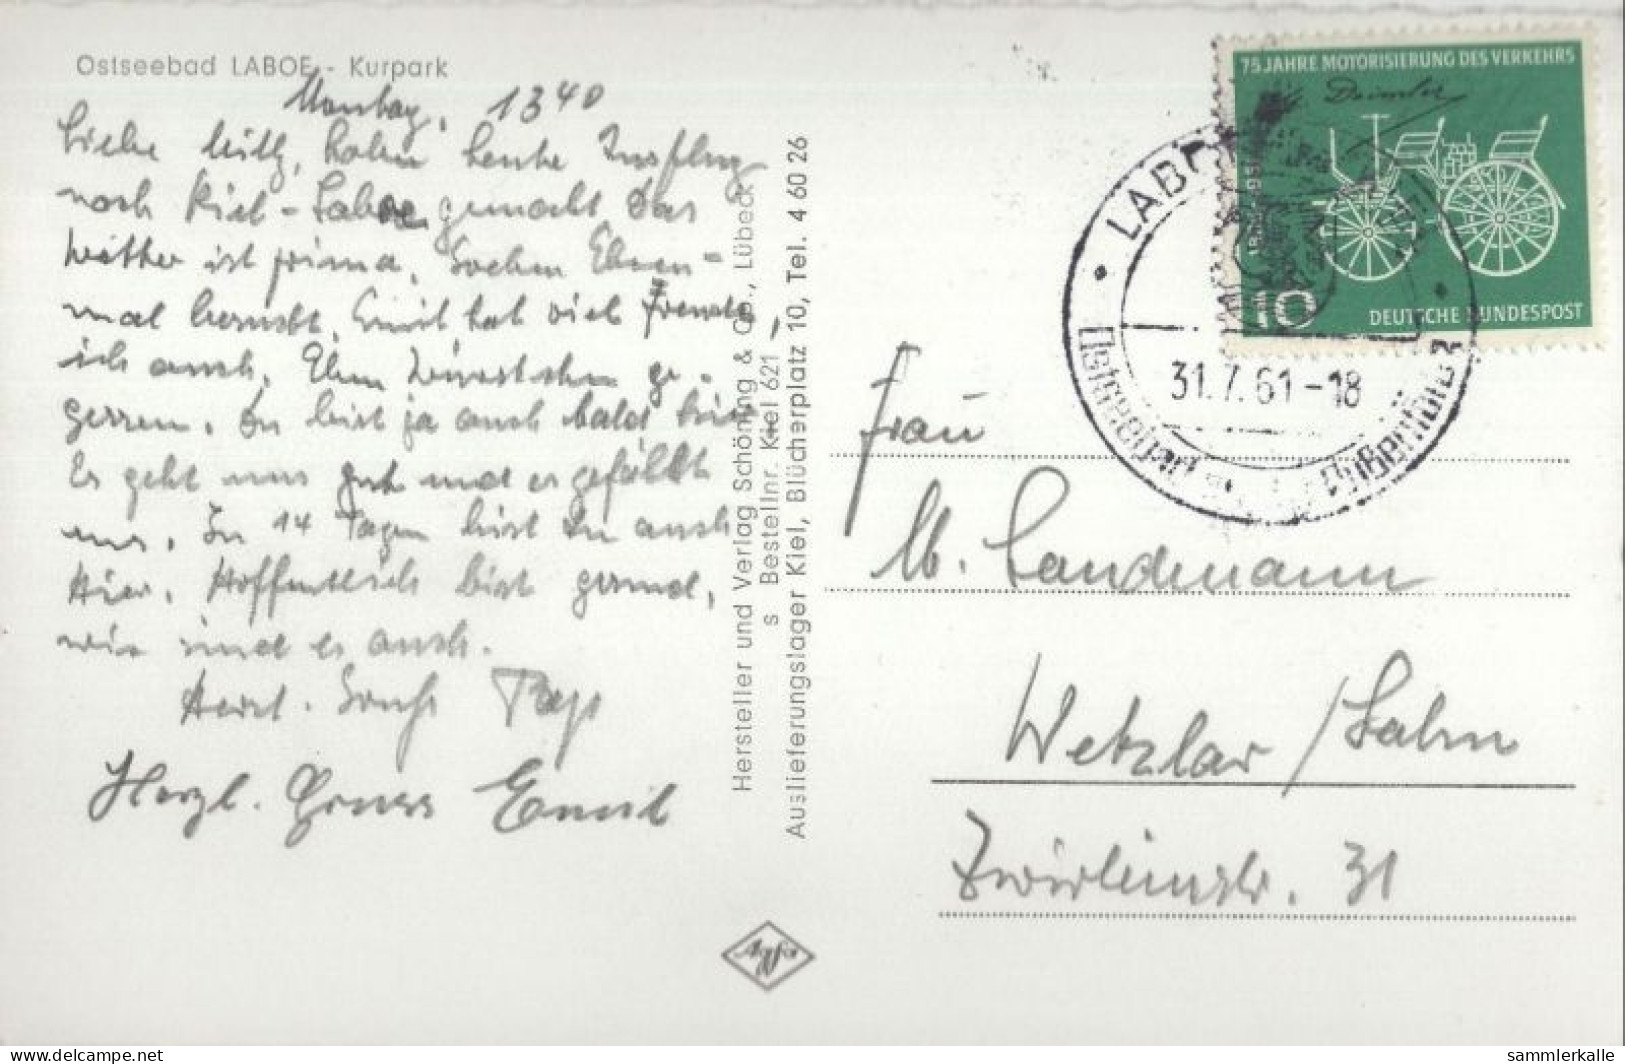 Ostseebad LABOE - Kurpark
Montag, 13 40
Liebe haben heute Ausflug
nach Kiel - Laboe gemacht Das
Wetter ist prima. Soeben Ehren=
mal besucht. Emil hat viel Freude,
ich auch. Eben Würstchen ge-
gessen. Du bist ja auch bald hier
Es geht uns gut und es gefällt
uns. In 14 Tagen bist Du auch
hier. Hoffentlich bist gesund,
wir sind es auch.
Herzl. Grüße Papa
Herzl. Gruss Emil
Hersteller und Verlag Schöning & Co., Lübeck
s Bestellnr. Kiel 621
Auslieferungslager Kiel, Blücherplatz 10, Tel. 4 60 26
Agfa
75 JAHRE MOTORISIERUNG DES VERKEHRS
G. Daimler
10
DEUTSCHE BUNDESPOST
LABOE
31.7.61-18
Ostseebad
Frau
M. Landmann
Wetzlar / Lahn
31
delcampe.net
sammlerkalle